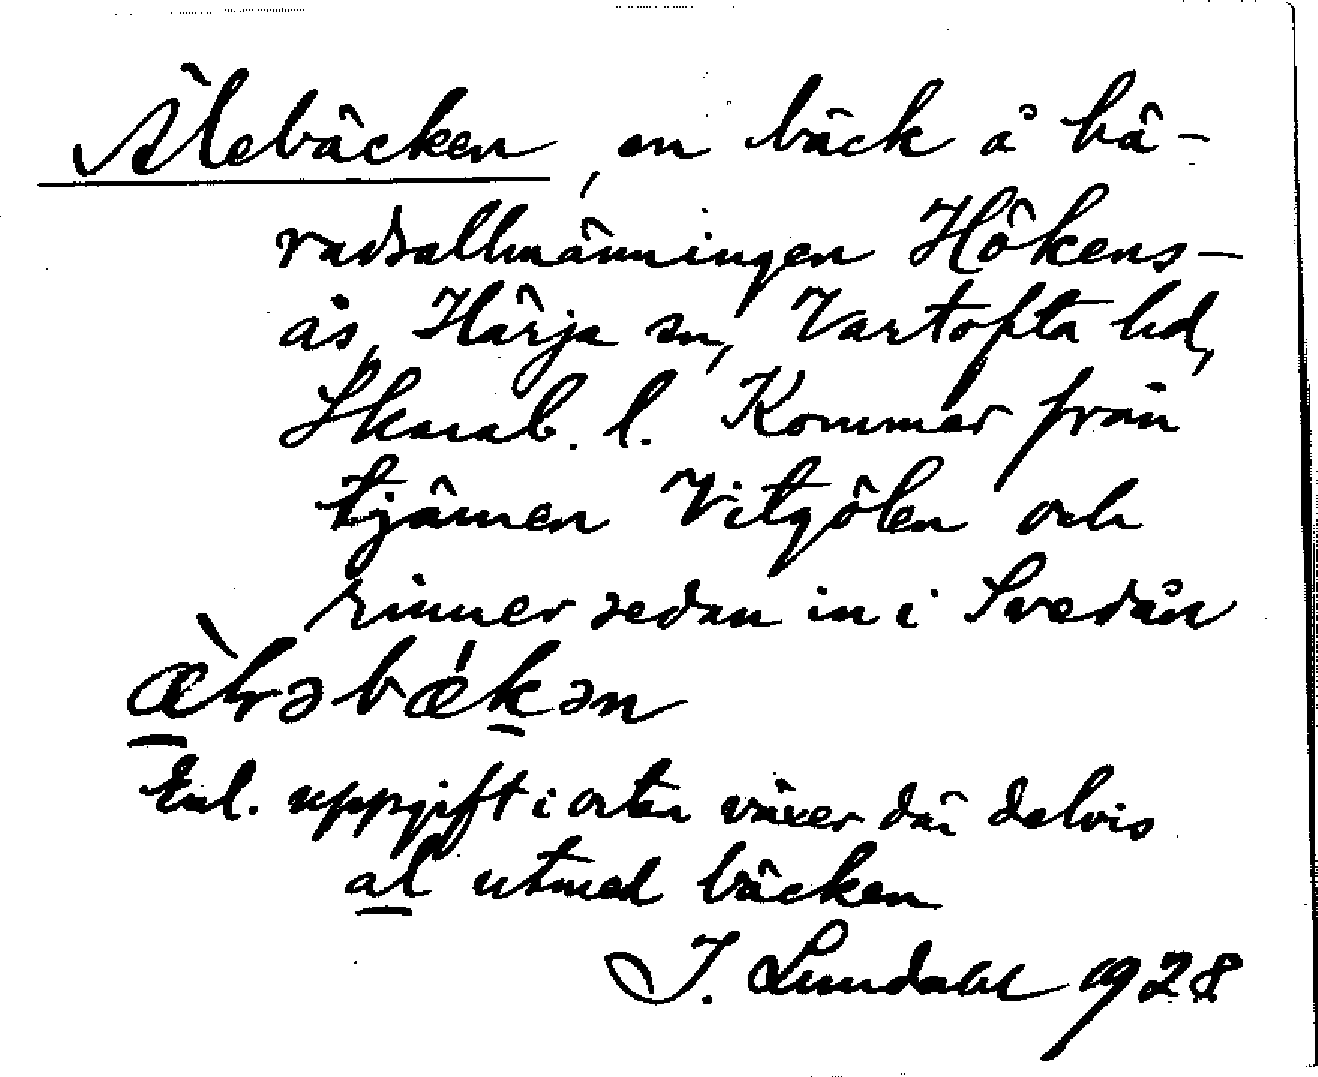 Älebäcken, en bäck å hä-
radsallmänningen Hökens-
ås, Härja sn, Vartofta hd,
Skarab. l. Kommer från
tjärnen Vitgölen och
rinner sedan in i Svedån
Enl. uppgift i orten växer där delvis
al utmed bäcken
I. Lundahl 1928